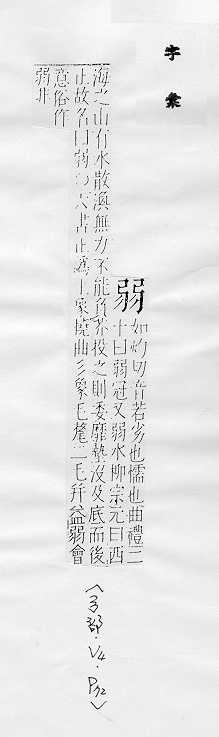 字彙
弱 如灼切音若劣也懦也曲禮二
十曰弱冠又弱水柳宗元曰西
海之山有水散渙無力不能負芥投之則委靡墊沒及底而後
止故名曰弱○六書正譌上象撓曲彡象毛氂二毛并益弱會
意俗作
弱非
〈弓部·V4·P32〉